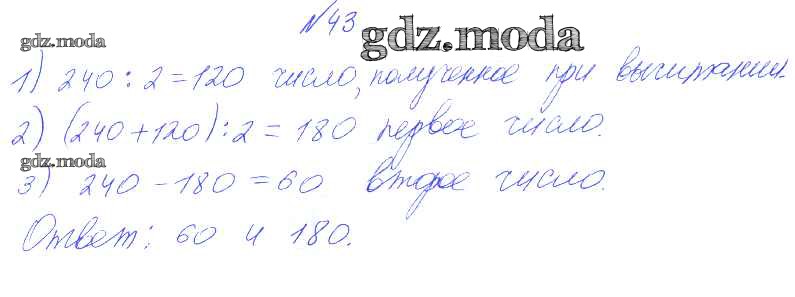 №43
gdz.moda
gdz.moda
1) 240 : 2 = 120 число, полученное при вычитании.
2) (240 + 120) : 2 = 180 первое число.
gdz.moda
3) 240 - 180 = 60 второе число.
Ответ: 60 и 180.